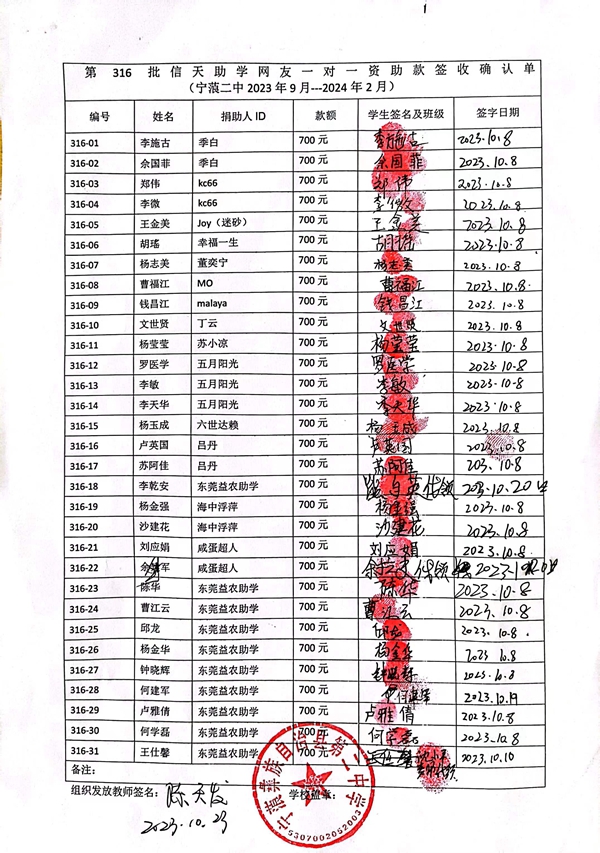 第 316 批信天助学网友一对一资助款签收确认单
（宁蒗二中 2023 年 9 月---2024 年 2 月）
编号 姓名 捐助人 ID 款额 学生签名及班级 签字日期
316-01 李施古 季白 700 元 李施古 2023.10.8
316-02 余国菲 季白 700 元 余国菲 2023.10.8
316-03 郑伟 kc66 700 元 郑伟 2023.10.8
316-04 李微 kc66 700 元 李微 2023.10.8
316-05 王金美 Joy（迷砂） 700 元 王金美 2023.10.8
316-06 胡瑤 幸福一生 700 元 胡瑤 2023.10.8
316-07 杨志美 董奕宁 700 元 杨志美 2023.10.8
316-08 曹福江 MO 700 元 曹福江 2023.10.8
316-09 钱昌江 malaya 700 元 钱昌江 2023.10.8
316-10 文世贤 丁云 700 元 文世贤 2023.10.8
316-11 杨莹莹 苏小凉 700 元 杨莹莹 2023.10.8
316-12 罗医学 五月阳光 700 元 罗医学 2023.10.8
316-13 李敏 五月阳光 700 元 李敏 2023.10.8
316-14 李天华 五月阳光 700 元 李天华 2023.10.8
316-15 杨玉成 六世达赖 700 元 杨玉成 2023.10.8
316-16 卢英国 吕丹 700 元 卢英国 2023.10.8
316-17 苏阿佳 吕丹 700 元 苏阿佳 203.10.8
316-18 李乾安 东莞益农助学 700 元 代领
316-19 杨金强 海中浮萍 700 元 杨金强 2023.10.8
316-20 沙建花 海中浮萍 700 元 沙建花 2023.10.8
316-21 刘应娟 咸蛋超人 700 元 刘应娟 2023.10.8
316-22 军 咸蛋超人 700 元 代领
316-23 陈华 东莞益农助学 700 元 陈华 2023.10.8
316-24 曹江云 东莞益农助学 700 元 曹江云 2023.10.8
316-25 邱龙 东莞益农助学 700 元 邱龙 2023.10.8
316-26 杨金华 东莞益农助学 700 元 杨金华 2023 10.8
316-27 钟晓辉 东莞益农助学 700 元 钟晓辉 2023.10.8
316-28 何建军 东莞益农助学 700 元 2023.10.19
316-29 卢雅倩 东莞益农助学 700 元 卢雅倩 2023.10.8
316-30 何学磊 东莞益农助学 700 元 何学磊 2023.10.8
316-31 王仕馨 东莞益农助学 700 元 2023.10.10
备注：
组织发放教师签名： 陈天发 学校盖章：
2023.10.23
宁蒗彝族自治县第二中学
5307002052003